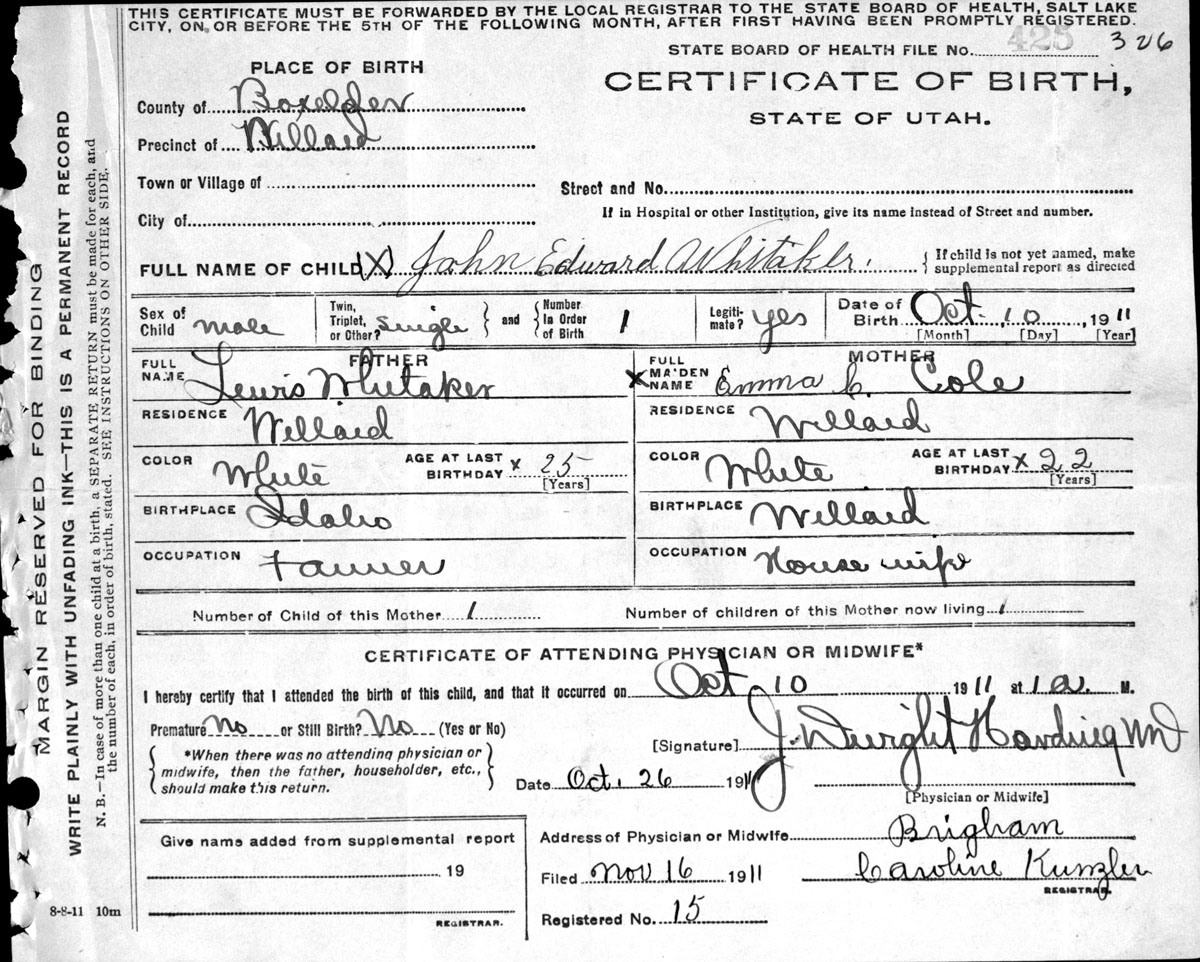 THIS CERTIFICATE MUST BE FORWARDED BY THE LOCAL REGISTRAR TO THE STATE BOARD OF HEALTH, SALT LAKE
CITY, ON OR BEFORE THE 5TH OF THE FOLLOWING MONTH, AFTER FIRST HAVING BEEN PROMPTLY REGISTERED.
STATE BOARD OF HEALTH FILE No. 425 326
PLACE OF BIRTH
CERTIFICATE OF BIRTH,
STATE OF UTAH.
County of Boxelder
Precinct of Willard
Town or Village of
Street and No.
City of
If in Hospital or other Institution, give its name instead of Street and number.
FULL NAME OF CHILD (X) John Edward Whitaker. { If child is not yet named, make
supplemental report as directed
Sex of Child male
Twin, Triplet, or Other? single } and { Number In Order of Birth 1
Legiti-mate? yes
Date of Birth Oct. 10, 1911
[Month] [Day] [Year]
FATHER
FULL NAME Lewis Whitaker
MOTHER
X FULL MAIDEN NAME Emma C. Cole
RESIDENCE Willard
RESIDENCE Willard
COLOR White AGE AT LAST BIRTHDAY x 25 [Years]
COLOR White AGE AT LAST BIRTHDAY x 22 [Years]
BIRTHPLACE Idaho
BIRTHPLACE Willard
OCCUPATION Farmer
OCCUPATION House wife
Number of Child of this Mother 1 Number of children of this Mother now living 1
CERTIFICATE OF ATTENDING PHYSICIAN OR MIDWIFE*
I hereby certify that I attended the birth of this child, and that it occurred on Oct 10 1911 at 1 a. M.
Premature No or Still Birth? No (Yes or No)
{ *When there was no attending physician or
midwife, then the father, householder, etc.,
should make this return. }
[Signature] J. Dwight Harding MD
Date Oct. 26 1911
[Physician or Midwife]
Address of Physician or Midwife Brigham
Filed Nov 16 1911 Caroline Kunzler
REGISTRAR.
Registered No. 15
Give name added from supplemental report
19
REGISTRAR.
8-8-11 10m
MARGIN RESERVED FOR BINDING
WRITE PLAINLY WITH UNFADING INK—THIS IS A PERMANENT RECORD
N. B.—In case of more than one child at a birth, a SEPARATE RETURN must be made for each, and
the number of each, in order of birth, stated. SEE INSTRUCTIONS ON OTHER SIDE.